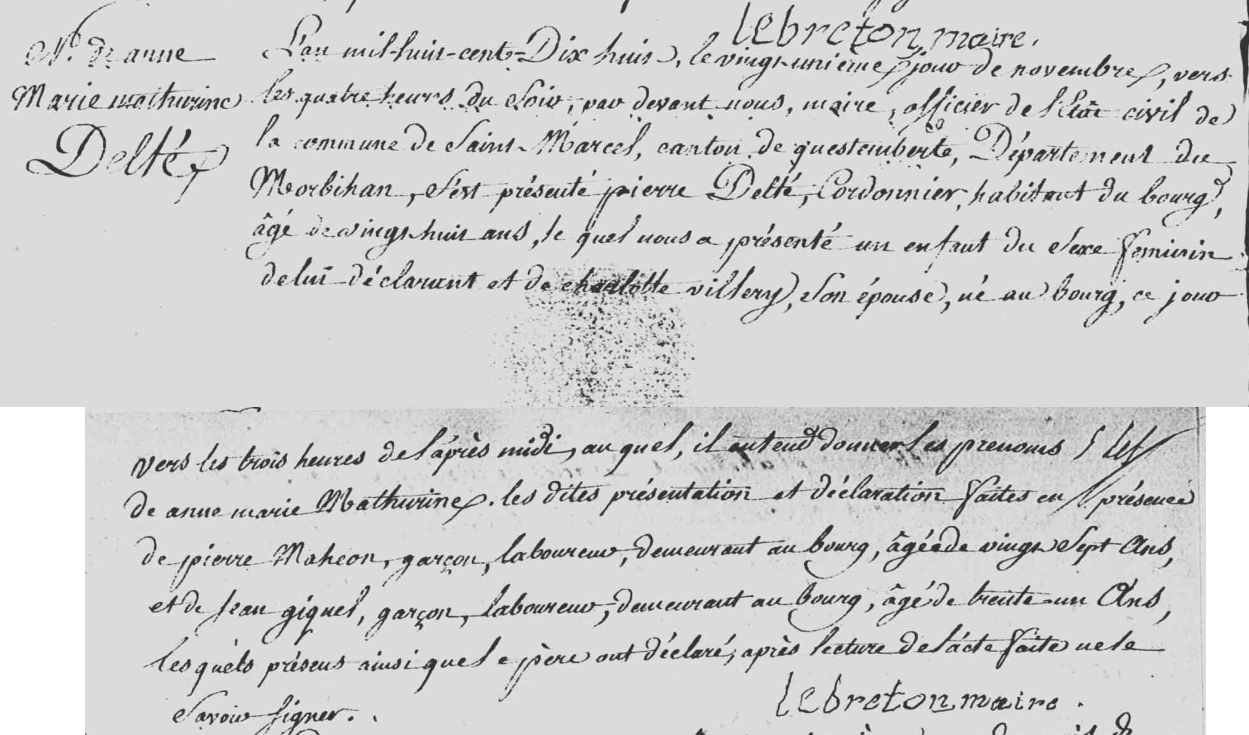 lebreton maire.
Nº. de anne
Marie mathurine
Delté
L'an mil-huit-cent-Dix huit, le vingt-unième jour de novembre, vers
les quatre heures du soir, par devant nous, maire, officier de l'Etat civil de
la commune de Saint-Marcel, canton de questemberte, Département du
Morbihan, s'est présenté pierre Delté, Cordonnier, habitant du bourg,
âgé de vingt-huit ans, le quel nous a présenté un enfant du sexe féminin
de lui déclarant et de charlotte villery, son épouse, né au bourg, ce jour
vers les trois heures de l'après midi, au quel, il entend donner les prenoms
de anne marie Mathurine. les dites présentation et déclaration faites en présence
de pierre Maheon, garçon, laboureur, demeurant au bourg, âgé de vingt Sept Ans,
et de Jean giquel, garçon, laboureur, demeurant au bourg, âgé de trente-un Ans,
les quels présens ainsi que le père ont déclaré, après lecture de l'acte faite ne le
Savoir signer.
lebreton maire.